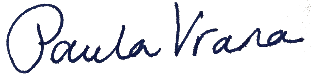 Paula Vrana